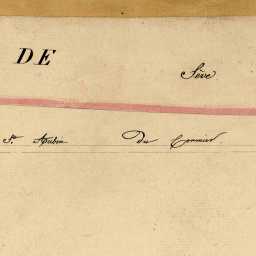 DE
Sève
St. Aubin du Cormier